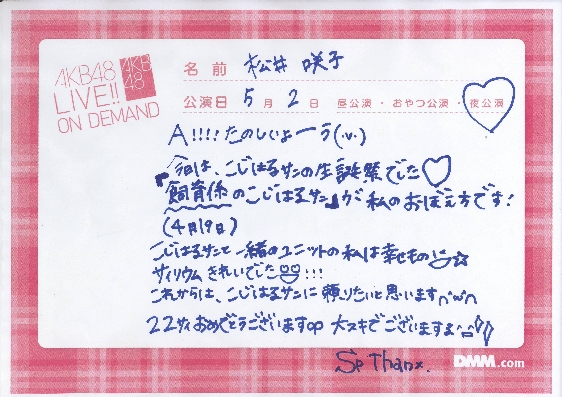 AKB48
LIVE!!
ON DEMAND
AKB
48
名前 松井 咲子
公演日 5月2日 昼公演・おやつ公演・夜公演
A!!!!たのしいよーう(・v・)
今日は、こじはるサンの生誕祭でした♡
『飼育係のこじはるサン』が私のおぼえ方です!
(4月19日)
こじはるサンと一緒のユニットの私は幸せもの☆
サイリウムきれいでした!!!
これからは、こじはるサンに頼りたいと思います^w^
22サイおめでとうございます 大スキでございますよ
Sp Thanx.
DMM.com